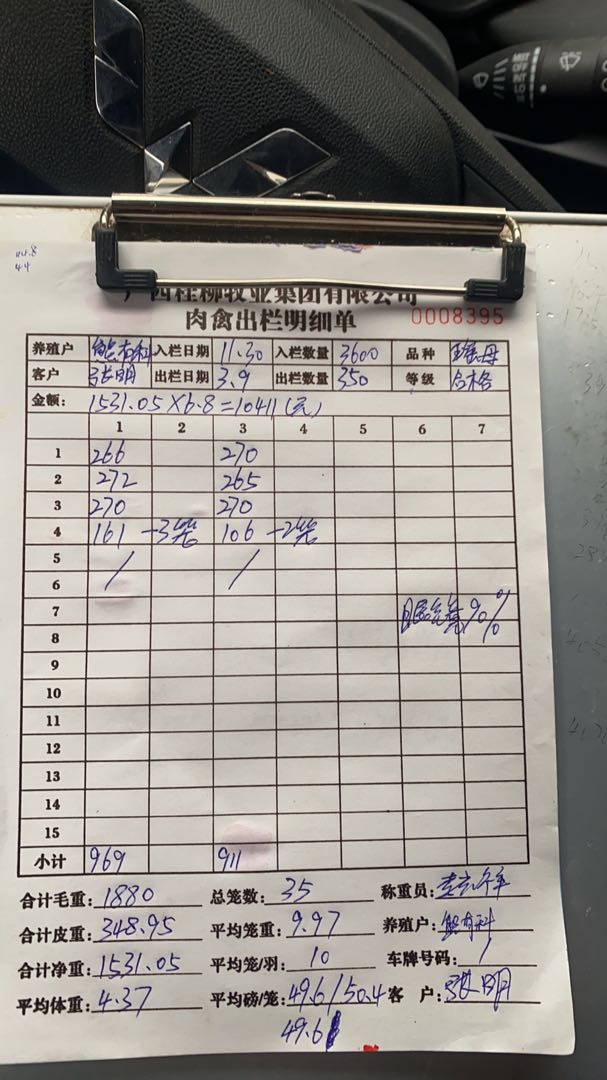 广西桂柳牧业集团有限公司
肉禽出栏明细单 0008395
养殖户 熊有科 入栏日期 11.30 入栏数量 3600 品种
客户 张明 出栏日期 3.9 出栏数量 350 等级 合格
金额: 1531.05×6.8=10411(元)
1 2 3 4 5 6 7
1 266 270
2 272 265
3 270 270
4 161 -3笼 106 -2笼
5 / /
6
7
8
9
10
11
12
13
14
15
小计 969 911
合计毛重: 1880 总笼数: 35 称重员:
合计皮重: 348.95 平均笼重: 9.97 养殖户: 熊有科
合计净重: 1531.05 平均笼/羽: 10 车牌号码: /
平均体重: 4.37 平均磅/笼: 49.6/50.4 客 户: 张明
49.6